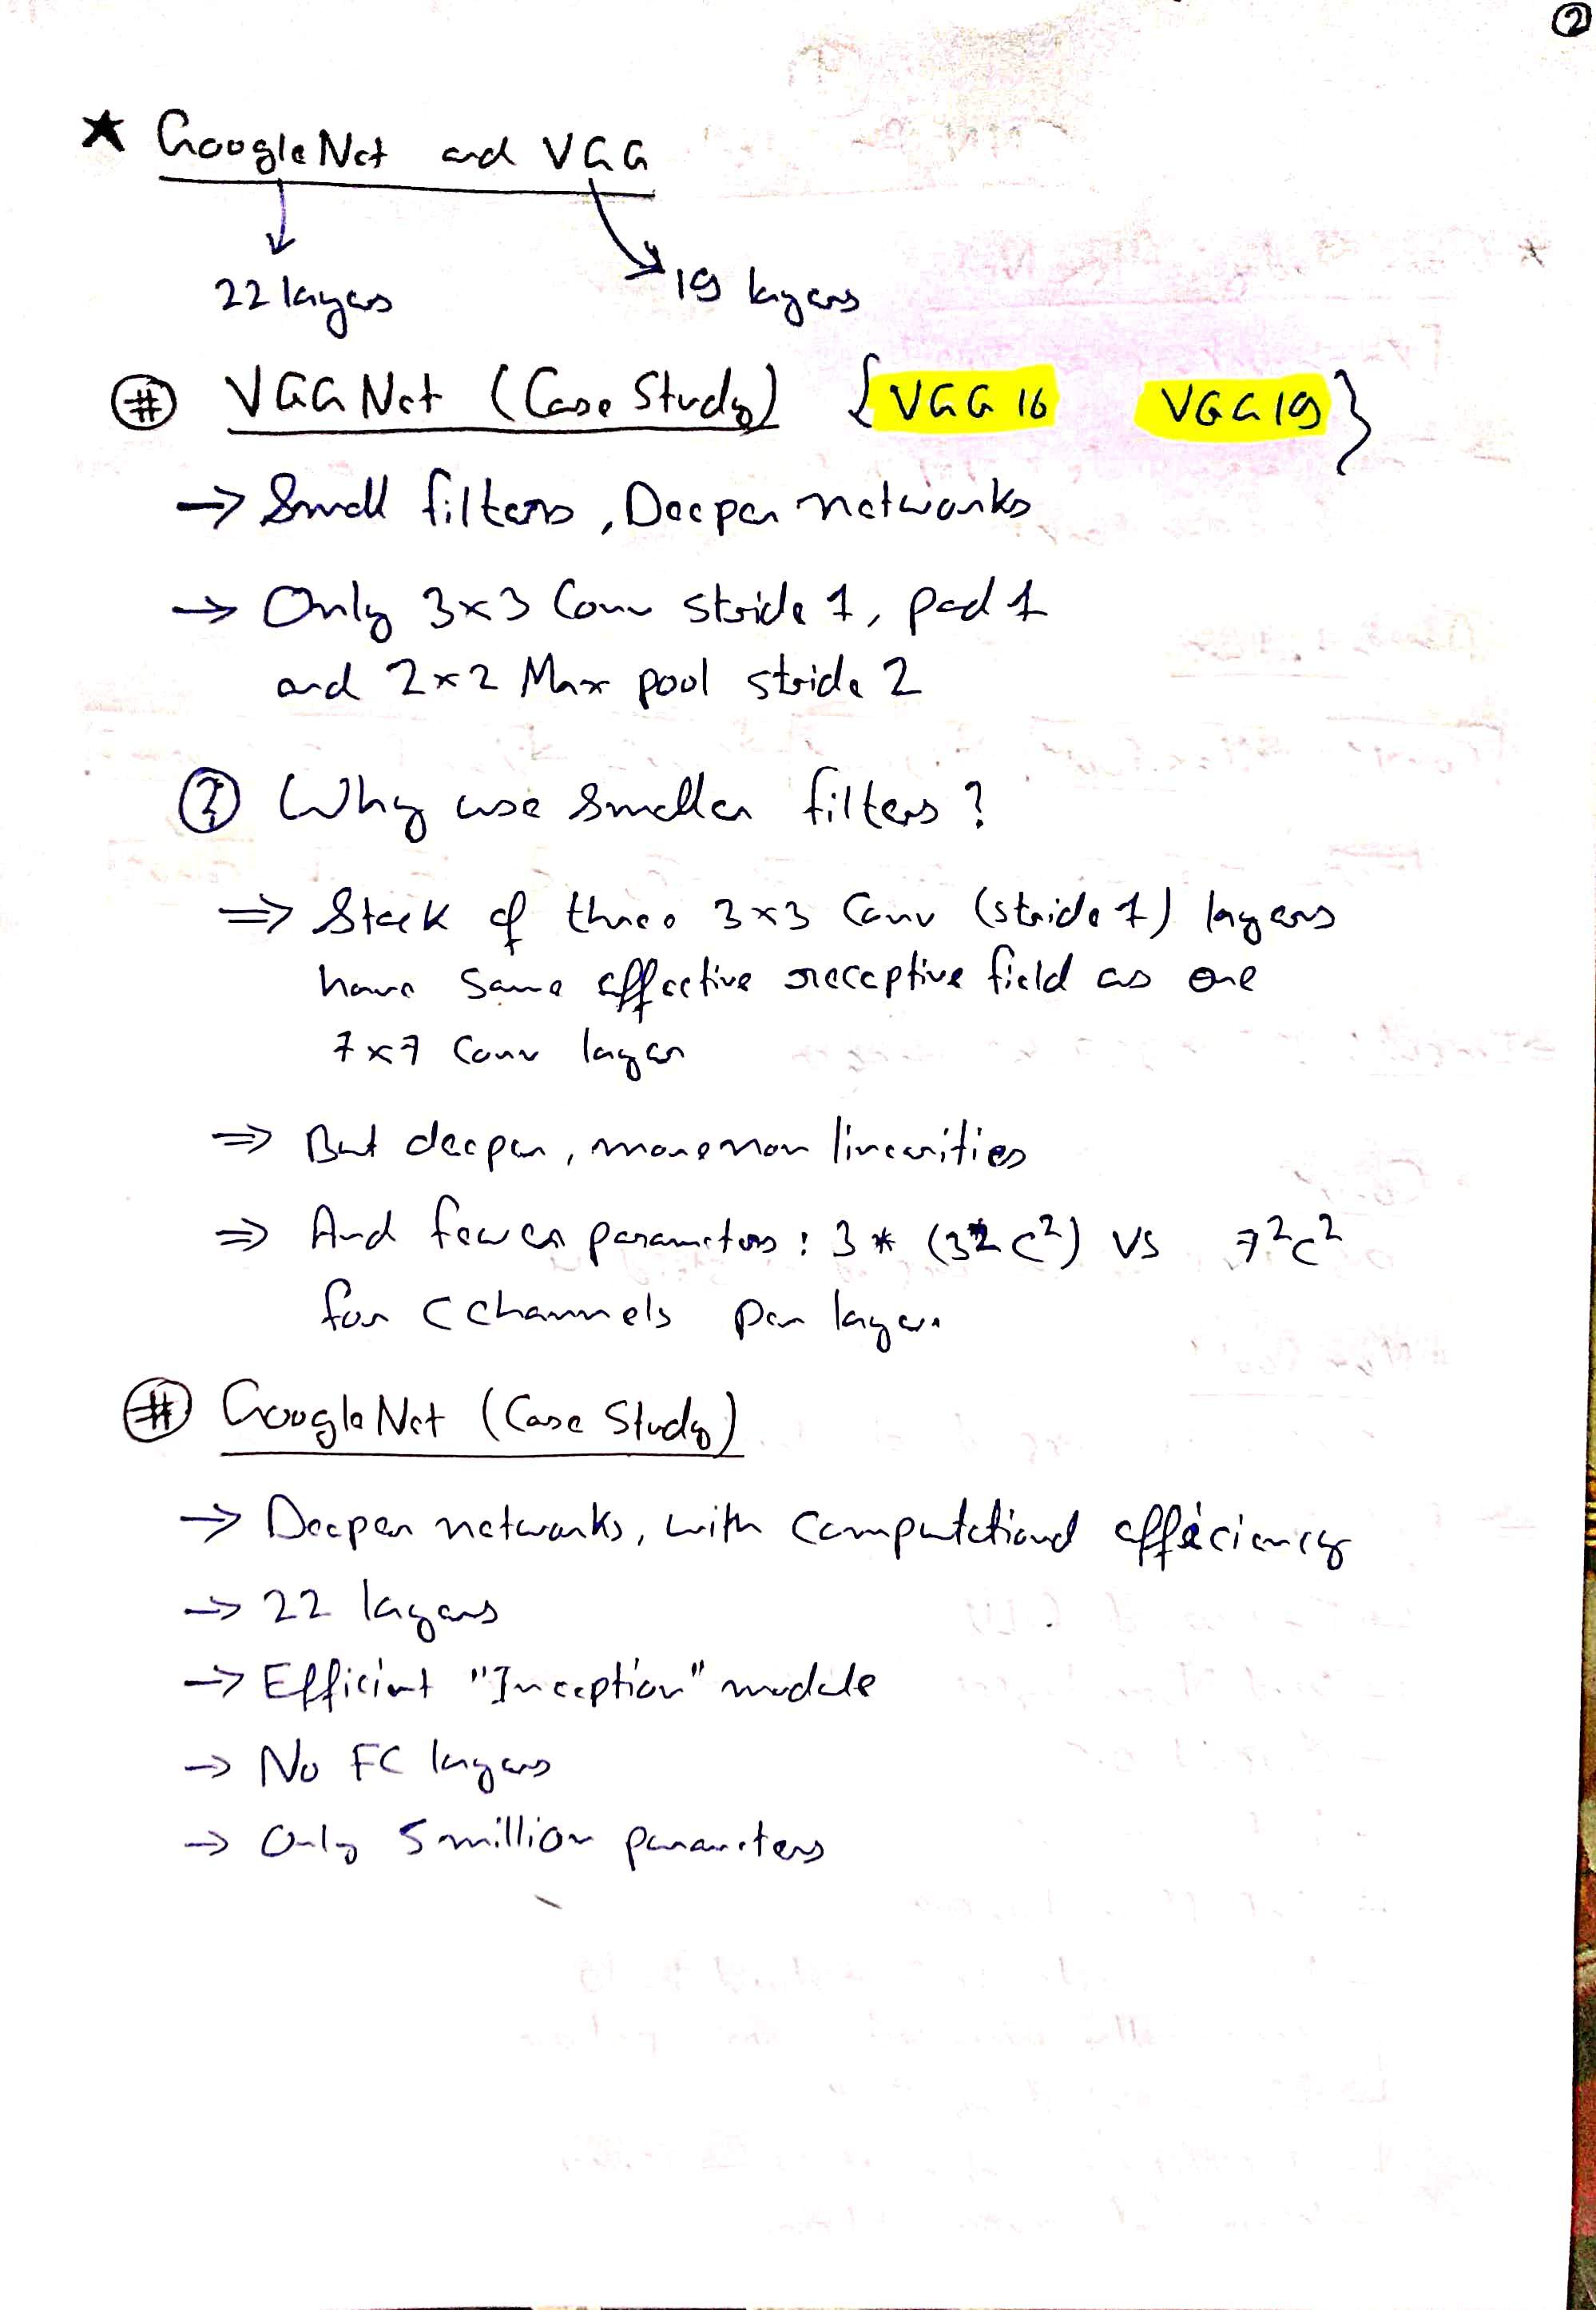 ②
★ GoogleNet and VGG
22 layers
19 layers
# VGGNet (Case Study) { VGG16 VGG19 }
→ Small filters, Deeper networks
→ Only 3x3 Conv stride 1, pad 1
and 2x2 Max pool stride 2
? Why use smaller filters?
⇒ Stack of three 3x3 Conv (stride 1) layers
have same effective receptive field as one
7x7 Conv layer
⇒ But deeper, more non linearities
⇒ And fewer parameters : 3 * (3²C²) VS 7²C²
for C channels per layer.
# GoogleNet (Case Study)
→ Deeper networks, with computational efficiency
→ 22 layers
→ Efficient "Inception" module
→ No FC layers
→ Only 5 million parameters